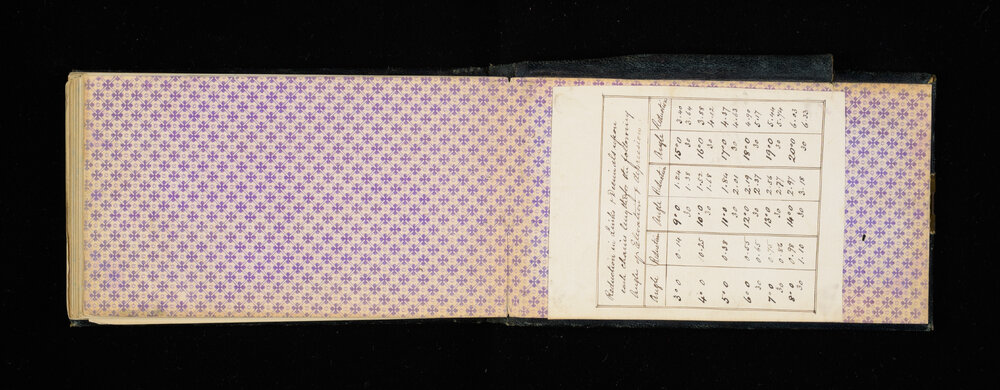 Reduction in Links & Decimals upon
each chain length for the following
Angles of Elevation & Depression
Angle Reduction Angle Reduction Angle Reduction
3°0 0.14 9°0 1.24 15°0 3.40
30 1.38 30 3.64
4°0 0.25 10°0 1.52 16°0 3.88
30 1.68 30 4.12
5°0 0.38 11°0 1.84 17°0 4.37
30 2.01 30 4.63
6°0 0.55 12°0 2.19 18°0 4.90
30 0.65 30 2.37 30 5.17
7°0 0.75 13°0 2.56 19°0 5.44
30 0.86 30 2.77 30 5.74
8°0 0.98 14°0 2.97 20°0 6.03
30 1.10 30 3.18 30 6.33